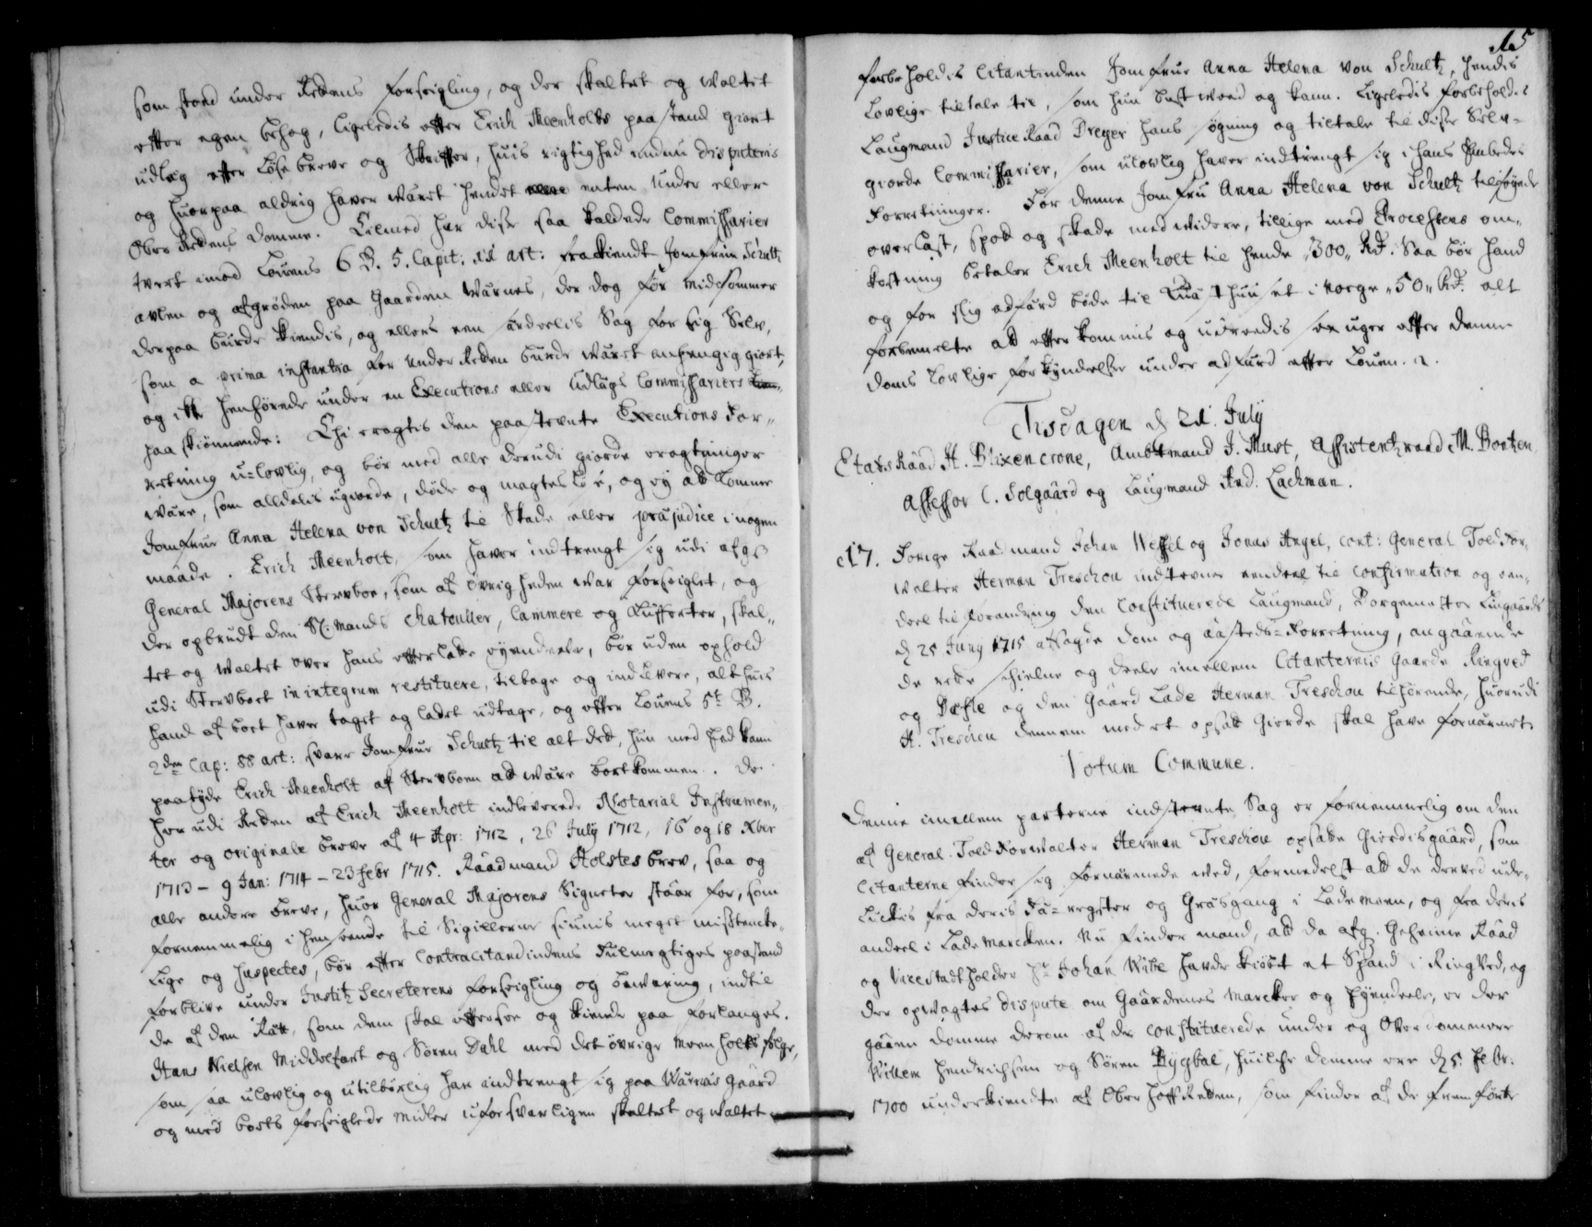 som stoed under Rettens forseigling, og der skaltet og waltet
efter egen behag, ligeledis efter Erich Meenholts paastand giort
udleg efter løse breve og Skrifter, huis rigtighed endnu disputeris
og huorpaa aldrig haver wäret hendet enten Under eller
Ober Rettens domme. Tilmed har disse saa kaldede Commissarier
twert imod Louens 6 B. 5. Capit: 11 art: frakiendt Jomfrue Schultz
avlen og afgrøden paa Gaarden Wärnes, der dog før Midsommer
derpaa burde kiendis, og ellers een serdeelis Sag for sig Selv,
som a prima instantia for Under Retten burde wäret anhengig giort,
og icke henhørede under en Executions eller Udlægs Commissariers
paaskiønnende: Thi eragtis den paastevnte Executions For-
retning u-lovlig, og bør med alle derudi giorde eragtninger
være, som alldelis ugiorde, døde og magtesløs, og ey at komme
Jomfrue Anna Helena von Schultz til Skade eller präjudice i nogen
maade. Erich Meenholt, som haver indtrengt sig udi afg:
General Majorens Stervboe, som af øvrigheden war forseiglet, og
der opbrudt den Sl: Mands Chatouller, Cammere og Kufferter, skal-
tet og waltet over hans efterlatte eyendeele, bør uden ophold
udi Stervboet in integrum restituere, tilbage og indlevere, alt huis
hand af boet haver taget og ladet udtage, og efter Louens 5te B.
2den Cap: 88 art: svare Jomfrue Schultz til alt det, hun med Eed kand
paatyde Erich Meenholt af Stervboen at wäre bortkommen. De
her udi Retten af Erich Meenholt indleverede Notarial Instrumen-
ter og originale breve af 4 Apr: 1712, 26 July 1712, 16 og 18 Xber
1713 – 9 Jan: 1714 – 23 febr 1715. Raadmand Holstes brev, saa og
alle andere breve, huor General Majorens Signeter staar for, som
fornemmelig i henseende til Sigillerne siunis meget mistencke-
lige og suspectes, bør efter Contracitantindens Fulmegtiges paastand
forblive under Justitz Secreterens forseigling og bewaring, indtil
de af dem Rätt, som dem skal eftersee og kiende paa forlanges.
Hans Nielsen Middelfart og Søren Dahl med det øvrige Meenholts følge,
som saa ulovlig og utilbørlig har indtrengt sig paa Wärnes gaard
og med boets forseiglede midler uforsvarligen skaltet og waltet
15
forbeholdis Citantinden Jomfrue Anna Helena von Schultz, hendis
Lovlige tiltale til, som hun best weed og kann. Ligeledis forbeholdes
Laugmand Justice Raad Dreyer hans søgning og tiltale til disse Selv-
giorde Commissarier, som ulovlig haver indtrengt sig i hans Embedes
Forretninger. For denne Jomfru Anna Helena von Schultz tilføyede
overlast, spott og skade med widere, tillige med Processens om-
kostning betaler Erich Meenholt til hende 300 Rd. Saa bør hand
og for slig adfärd bøde til Qua huuset i Norge 50 Rd. alt
forbemelte at efterkommis og udreedis sex uger efter denne
doms lovlige forkyndelse under adfärd efter Louen.
Tisdagen d 21 July
Etats Raad H. Blixencrone, Ambtmand J. Must, Assistentzraad M. Bentzen
Assessor C. Solgaard og Laugmand And. Lachman.
17. Forige Raadmand Johan Wessel og Jonas Angel, cont: General Told For-
walter Herman Treschou indstevner eendeel til Confirmation og een-
deel til forandring den Constituerede Laugmand, Borgemester Lingaards
d 25 Juny 1715 afsagde dom og aasteds-Forretning, angaaende
de rette schielne og deele imellem Citanternis gaarde Ringved
og Presle og den Gaard Lade Herman Treschou tilhørende, huorudi
H. Treschou dennem med et opsat Gierde skal have fornärmet.
Votum Commune.
Denne imellem parterne indstevnte Sag er fornemmelig om den
af General-Told-Forwalter Herman Treschou opsatte Gierdisgaard, som
Citanterne finder sig fornärmede wed, formedelst at de derved ude-
luckis fra deris Fä-regster og Gräsgang i Lademoen, og fra deris
andeel i Lade marcken. Nu finder mand, at da afg. Geheime Raad
og Vice Stadtholder Hr Johan Wibe havde kiøbt et Spand i Ringved, og
der opwagtes dispute om Gaardenes Marcker og Eyendeele, er der
gaaen domme derom af de Constituerede under og Overdommere
Willem Hendrichsen og Søren Bygbal, huilche domme ere d 5. febr:
1700 underkiendte af Ober Hoff Retten, som finder af de fremførte